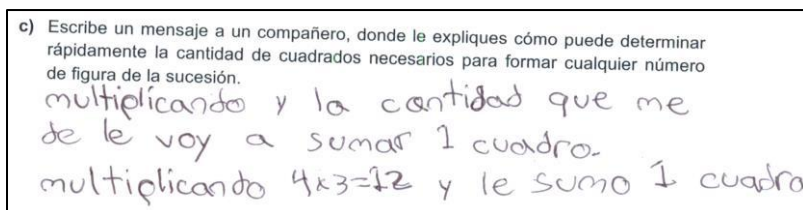 c) Escribe un mensaje a un compañero, donde le expliques cómo puede determinar
rápidamente la cantidad de cuadrados necesarios para formar cualquier número
de figura de la sucesión.
multiplicando y la cantidad que me
de le voy a sumar 1 cuadro.
multiplicando 4x3=12 y le sumo 1 cuadro